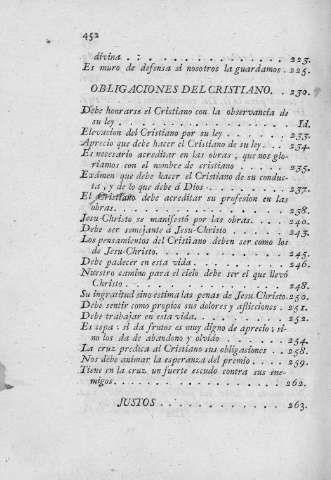 452
divina . . . . . . . . . . . . . . 223.
Es muro de defensa si nosotros la guardamos . 225.
OBLIGACIONES DEL CRISTIANO. . . 230.
Debe honrarse el Cristiano con la observancia de
su ley . . . . . . . . . . . . . . Id.
Elevacion del Cristiano por su ley . . . . . . 233.
Aprecio que debe hacer el Cristiano de su ley . . 234.
Es necesario acreditar en las obras , que nos glo-
riamos con el nombre de cristiano . . . . . 235.
Exâmen que debe hacer el Cristiano de su conduc-
ta , y de lo que debe á Dios . . . . . . . 237.
El Cristiano debe acreditar su profesion en las
obras. . . . . . . . . . . . . . . 238.
Jesu-Christo se manifestó por las obras. . . . 240.
Debe ser semejante á Jesu-Christo . . . . . . 243.
Los pensamientos del Cristiano deben ser como los
de Jesu-Christo. . . . . . . . . . . . 245.
Debe padecer en esta vida . . . . . . . . 246.
Nuestro camino para el cielo debe ser el que llevó
Christo . . . . . . . . . . . . . . 248.
Su ingratitud sino estima las penas de Jesu Christo. 250.
Debe sentir como propios sus dolores y aflicciones . 251.
Debe trabajar en esta vida. . . . . . . . . 252.
Es cepa : si da frutos es muy digno de aprecio ; si-
no los da de abandono y olvido . . . . . . 254.
La cruz predica al Cristiano sus obligaciones . . 258.
Nos debe animar la esperanza del premio . . . . 259.
Tiene en la cruz un fuerte escudo contra sus ene-
migos. . . . . . . . . . . . . . . 262.
JUSTOS . . . . . . . . . . . . . 263.